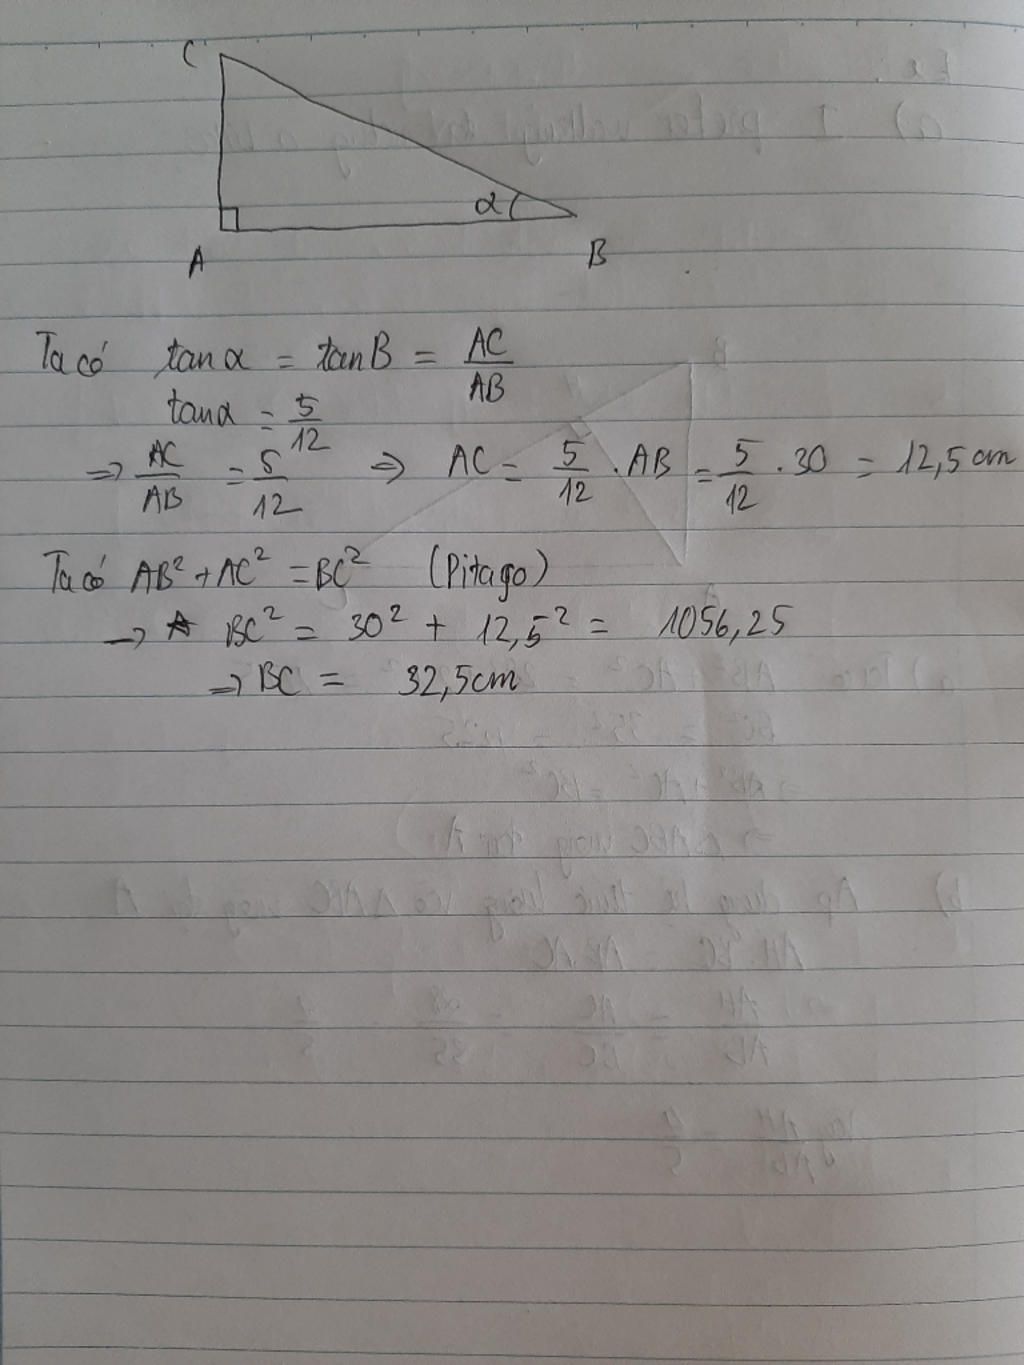 C
α
A
B
Ta có tanα = tanB = AC/AB
tanα = 5/12
=> AC/AB = 5/12 => AC = 5/12 . AB = 5/12 . 30 = 12,5 cm
Ta có AB² + AC² = BC² (Pitago)
→ A BC² = 30² + 12,5² = 1056,25
=> BC = 32,5cm